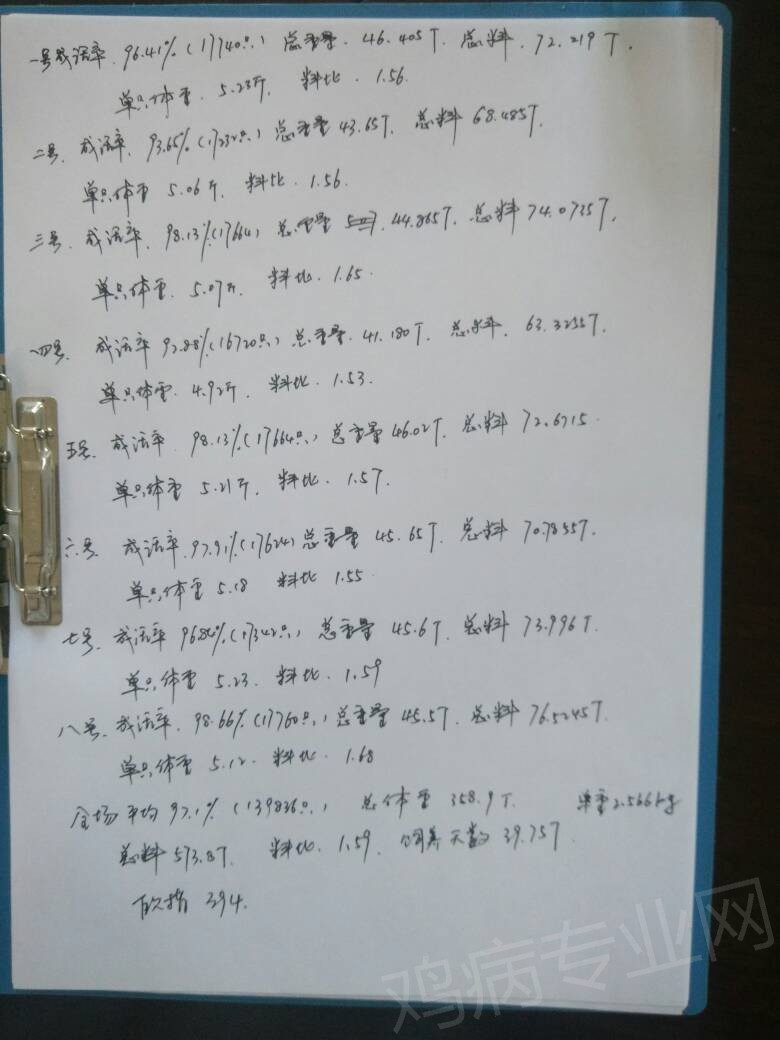 一号成活率.96.41%(17740只) 总重量.46.405T.总料.72.219T.
单只体重.5.23斤. 料比.1.56.
二号.成活率.93.65%(17232只)总重量43.65T. 总料68.485T.
单只体重5.06斤.料比.1.56.
三号.成活率.98.13%(17664)总重量 44.865T.总料74.0735T.
单只体重.5.07斤. 料比.1.65.
四号.成活率93.88%(16720只)总重量.41.180T.总料.63.3255T.
单只体重.4.92斤.料比.1.53.
五号.成活率.98.13%(17664只)总重量46.02T.总料72.6715.
单只体重5.21斤.料比.1.57.
六号 成活率.97.91%(17624)总重量45.65T.总料70.7855T.
单只体重5.18 料比1.55
七号.成活率96.84%(17342只)总重量45.6T.总料73.996T.
单只体重5.23.料比.1.59
八号.成活率.98.66%(17760只)总重量45.5T.总料76.5245T.
单只体重5.12.料比.1.68
全场平均97.1%(139836只) 总体重358.9T. 单重2.566kg
总料573.8T. 料比.1.59.饲养天数39.757.
欧指394.
鸡病专业网